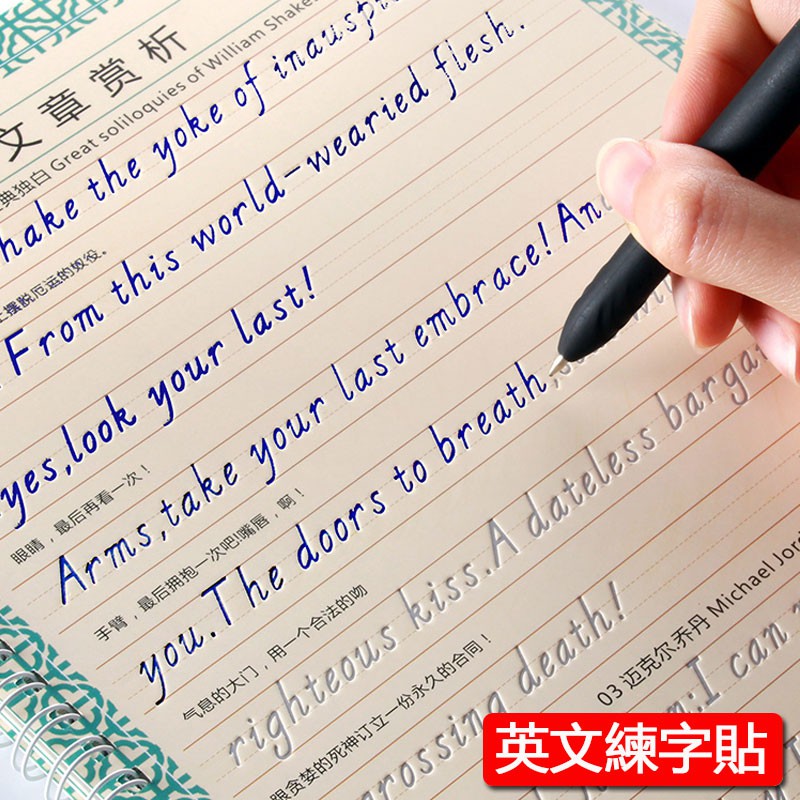 文章赏析
典独白 Great soliloquies of William Shake
hake the yoke of inauspi
上摆脱厄运的奴役。
From this world-wearied flesh.
yes,look your last!
眼睛，最后再看一次！
Arms,take your last embrace!And
手臂，最后拥抱一次吧!嘴唇，啊！
you.The doors to breath,
气息的大门，用一个合法的吻
righteous kiss.A dateless barga
眼贪婪的死神订立一份永久的合同！
rossing death!
03 迈克尔.乔丹 Michael Jord
:I can
英文練字貼